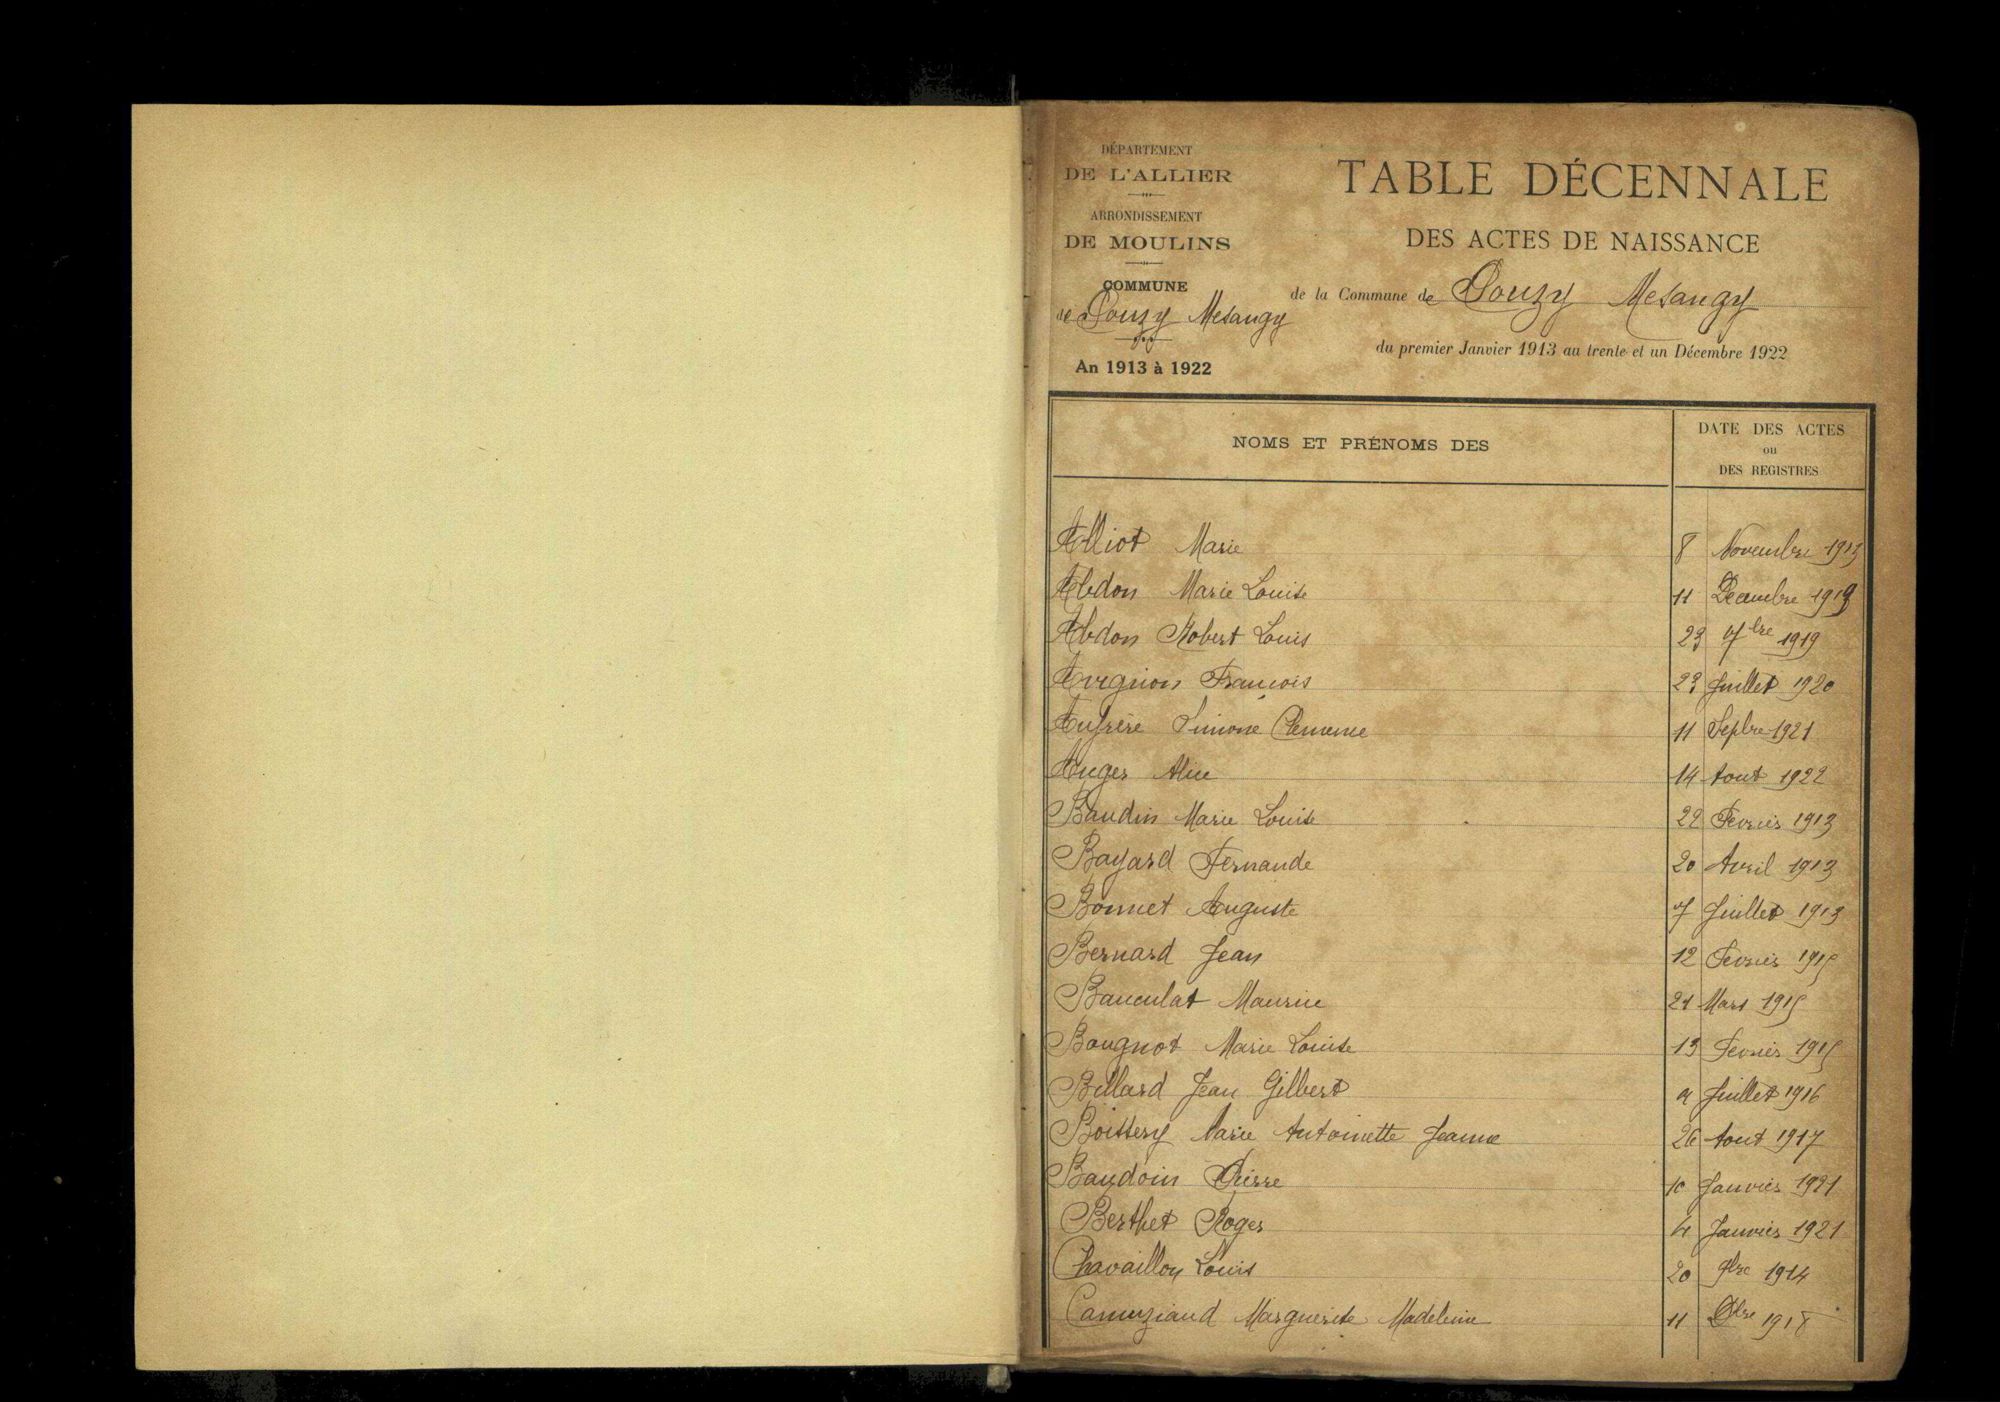 DÉPARTEMENT
DE L'ALLIER
ARRONDISSEMENT
DE MOULINS
COMMUNE
de Pouzy Mesangy
An 1913 à 1922
TABLE DÉCENNALE
DES ACTES DE NAISSANCE
de la Commune de Pouzy Mesangy
du premier Janvier 1913 au trente et un Décembre 1922
NOMS ET PRÉNOMS DES
DATE DES ACTES
ou
DES REGISTRES
Alliot Marie 8 Novembre 1913
Abdon Marie Louise 11 Decembre 1919
Abdon Robert Louis 23 7bre 1919
Avignon François 23 Juillet 1920
Aufrère Simone Clemence 11 Sepbre 1921
Auger Alice 14 Aout 1922
Baudin Marie Louise 22 Fevrier 1913
Bayard Fernande 20 Avril 1913
Bonnet Auguste 7 Juillet 1913
Bernard Jean 12 Fevrier 1915
Bauculat Maurice 21 Mars 1915
Bougnot Marie Louise 13 Fevrier 1915
Billard Jean Gilbert 9 Juillet 1916
Boissery Marie Antoinette Jeanne 26 Aout 1917
Baudoin Pierre 10 Janvier 1921
Berthet Roger 4 Janvier 1921
Chavaillon Louis 20 9bre 1914
Camuziaud Marguerite Madeleine 11 1918